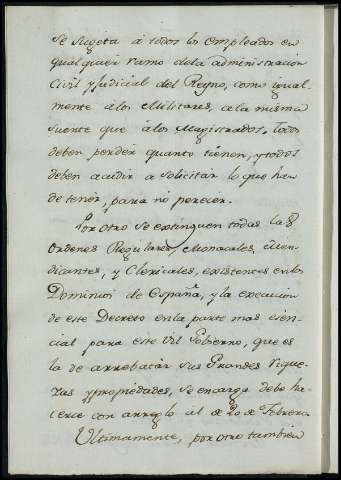 se sugeta á todos los empleados en
qualquier ramo dela administracion
Civil y Judicial del Reyno, como igual-
mente álos Militares, ala misma
suerte que álos Magistrados, todos
deben perder quanto tienen, y todos
deben acudir a solicitar lo que han
de tener, para no perecer.
Por otro se extinguen todas las
Ordenes Regulares, Monacales, Men-
dicantes, y Clericales, existentes enlos
Dominios de España, y la execucion
de este Decreto en la parte mas esen-
cial para este vil Gobierno, que es
la de arrebatar sus Grandes rique-
zas y propiedades, se encarga debe ha-
cerse con arreglo al de 20 de Febrero.
Ultimamente, por otro tambien